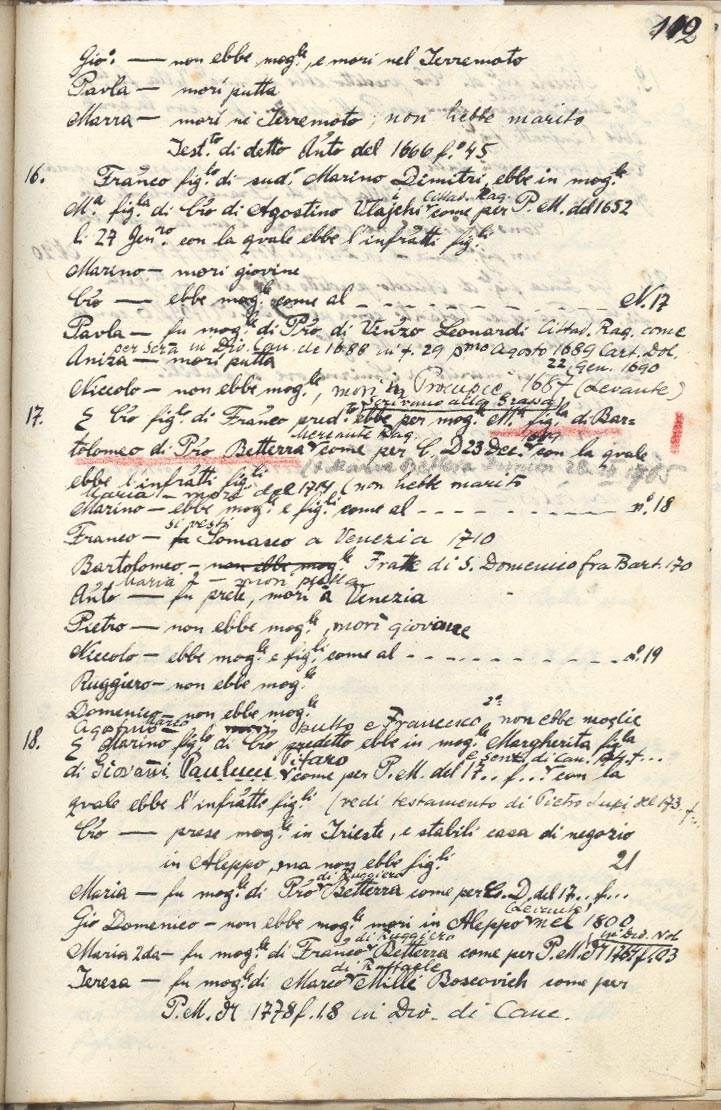 112
Gio: — non ebbe mog.le, e morì nel Terremoto
Pavla — morì putta
Marra — morì nel Terremoto; non hebbe marito
Test.to di detto Anto del 1666 f.o 45
16. Franco fig.lo di sud.o Marino Dimitri, ebbe in mog.le
Cittad. Rag.
M.a fig.la di Gio di Agostino Vlajchi come per P.M. del 1652
li 27 Gen.ro con la qvale ebbe l'infratti fig.li
Marino — morì giovine
Gio — ebbe mog.le come al - - - - - - - N. 17
Pavla — fu mog.le di Pro di Vinzo Leonardi Cittad. Rag. come
per Serà in Div. Can. de 1688 in f. 29 pmo Agosto 1689 Cart. Dot.
Aniza — morì putta
22 Gen. 1690
Niccolo — non ebbe mog.le, morì in Procupie 1687 (Levante)
Scrivano alla
17. E Gio fig.lo di Franco pred.to ebbe per mog.le M.a fig.la di Bar=
Mercante Rag.
tolomeo di Pro Betterra come per C. D 23 Dec. con la qvale
28 1765
ebbe l'infratti fig.li
Maria — morì del 1714 (non hebbe marito
Marino — ebbe mog.le e fig.li come al - - - - - - - n.o 18
si vestì
Franco — fu Somasco a Venezia 1710
Bartolomeo — non ebbe mog.le Frate di S. Domenico fra Bart. 170
Maria 2 — morì putta
Anto — fu prete, morì à Venezia
Pietro — non ebbe mog.le, morì giovane
Niccolo — ebbe mog.le e fig.li come al - - - - - - - n.o 19
Ruggiero — non ebbe mog.le
Domenico — non ebbe mog.le
Agostino — morì putto e Francesco 2o non ebbe moglie
18. E Marino fig.lo di Gio predetto ebbe in mog.le Margherita fig.la
Pifaro
di Giovanni Paulucci come per P.M. del 17.. f... con la
qvale ebbe l'infratte fig.li (vedi testamento di Pietro Luxi del 173. f..
Gio — prese mog.le in Trieste, e stabilì casa di negozio
in Aleppo, ma non ebbe fig.li 21
di Ruggiero
Maria — fu mog.le di Pro Betterra come per C. D. del 17.. f...
(Levante)
Gio Domenico — non ebbe mog.le morì in Aleppo nel 1800
di Ruggiero
in Div. Not
Maria 2da — fu mog.le di Franco Betterra come per P.M.
di Raffaele
Teresa — fu mog.le di Marco Milli Boscovich come per
P.M. di 1778 f. 18 in Div. di Canc.